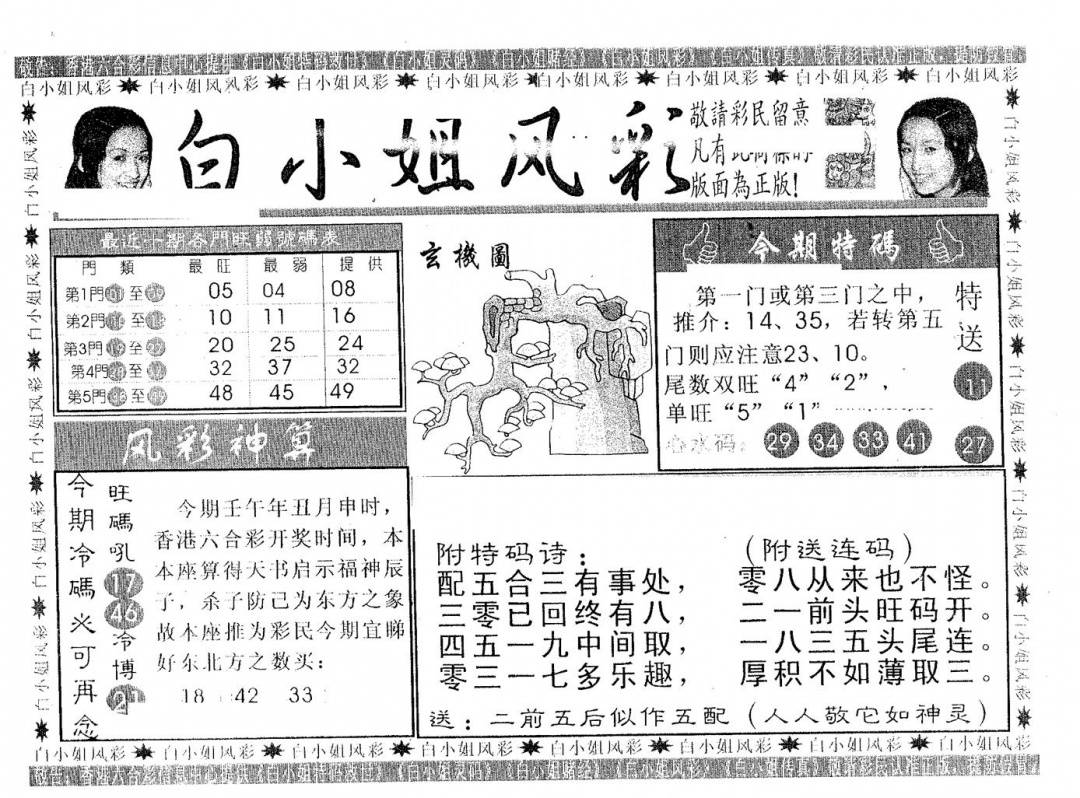 敬告：香港六合彩信息中心提供《白小姐特码救世》《白小姐灵码》《白小姐赌经》《白小姐风彩》《白小姐传真》敬请彩民认准正版，提防假冒
白小姐风彩 白小姐风彩 白小姐风彩 白小姐风彩 白小姐风彩 白小姐风彩 白小姐风彩 白小姐风彩
白小姐风彩
敬請彩民留意
凡有此商標的
版面為正版!
最近十期各門旺弱號碼表
門類 最旺 最弱 提供
第1門01至09 05 04 08
第2門10至18 10 11 16
第3門19至27 20 25 24
第4門28至37 32 37 32
第5門38至49 48 45 49
玄機圖
今期特碼
第一门或第三门之中，
推介：14、35，若转第五
门则应注意23、10。
尾数双旺“4”“2”，
单旺“5”“1”
心水码：29 34 33 41
特送
11
27
风彩神算
今期冷碼火可再念
旺碼吼
17
46
冷博
21
今期壬午年丑月申时，
香港六合彩开奖时间，本
本座算得天书启示福神辰
子，杀子防己为东方之象
故本座推为彩民今期宜睇
好东北方之数买：
18 42 33
附特码诗： （附送连码）
配五合三有事处， 零八从来也不怪。
三零已回终有八， 二一前头旺码开。
四五一九中间取， 一八三五头尾连。
零三一七多乐趣， 厚积不如薄取三。
送：二前五后似作五配（人人敬它如神灵）
白小姐风彩 白小姐风彩 白小姐风彩 白小姐风彩 白小姐风彩 白小姐风彩 白小姐风彩 白小姐风彩
敬告：香港六合彩信息中心提供《白小姐特码救世》《白小姐灵码》《白小姐赌经》《白小姐风彩》《白小姐传真》敬请彩民认准正版，提防假冒